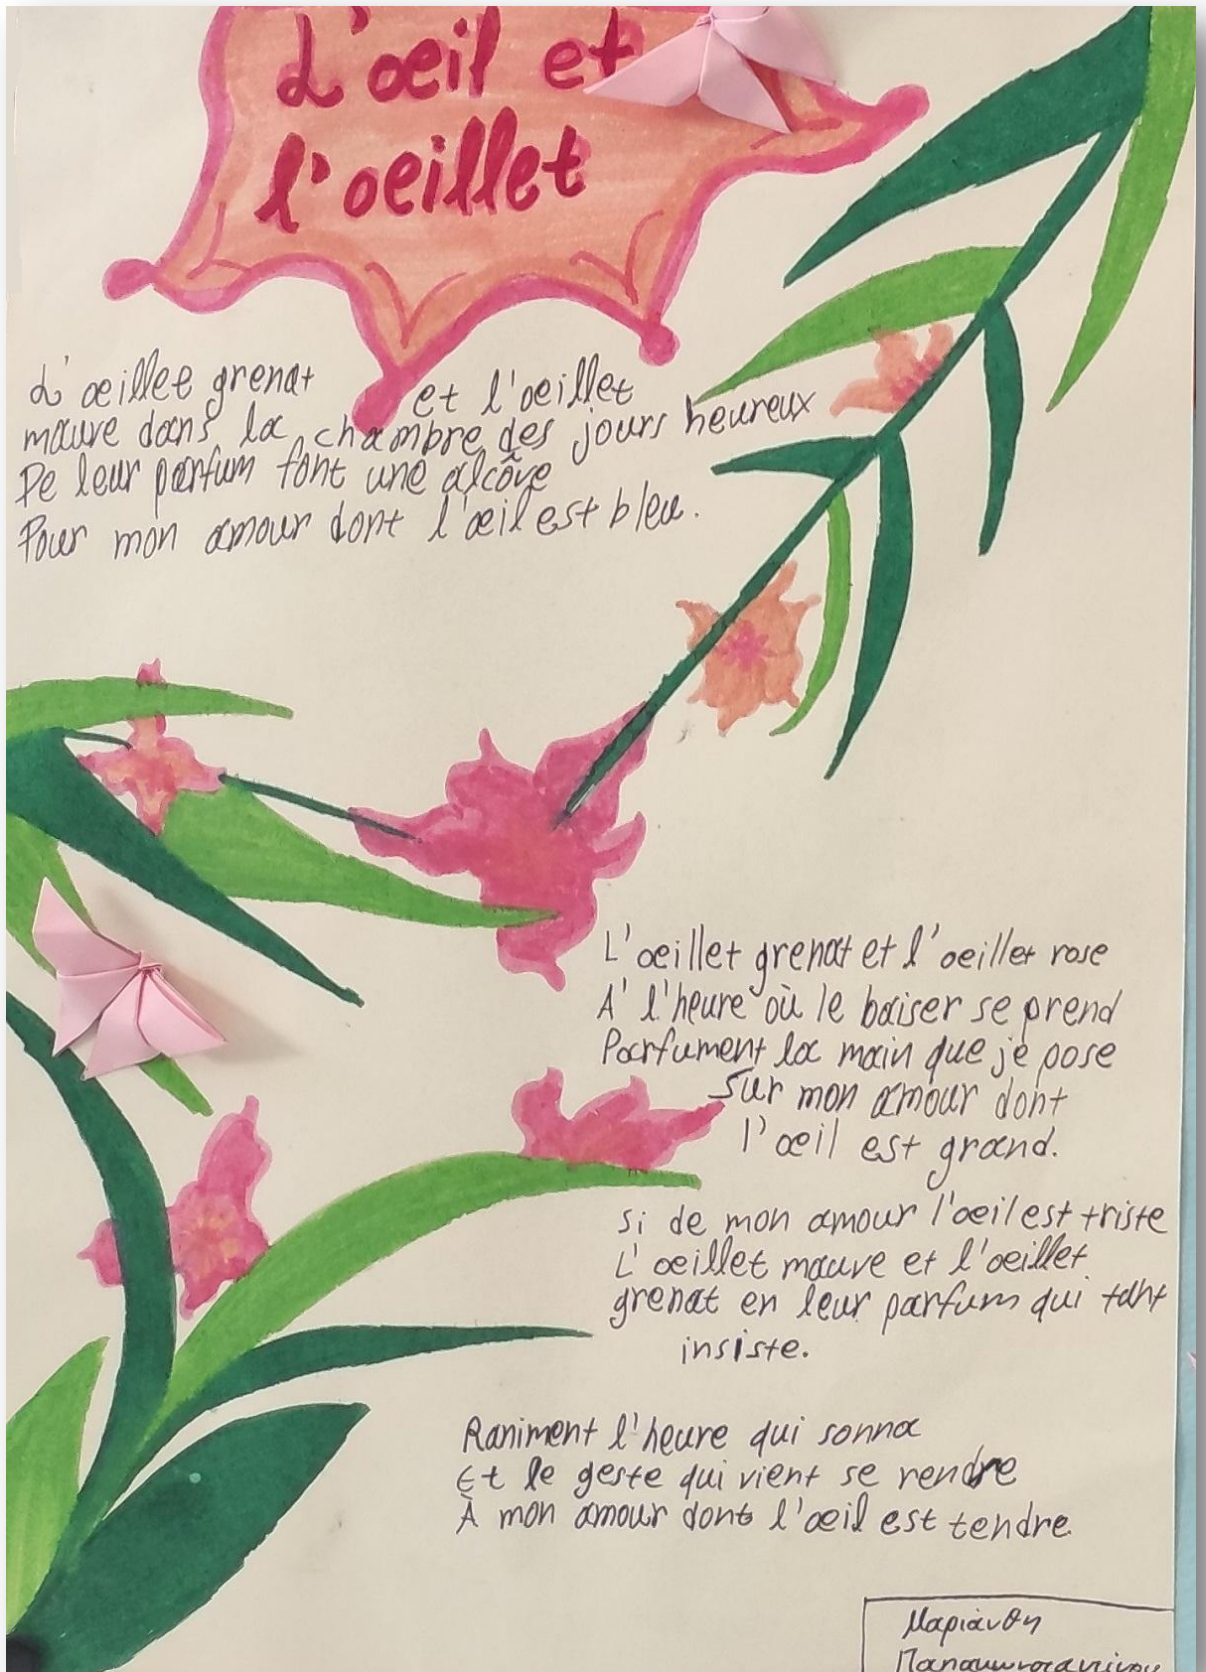 L'œil et
l'oeillet
L'œillet grenat et l'oeillet
mauve dans la chambre des jours heureux
De leur parfum font une alcôve
Pour mon amour dont l'œil est bleu.
L'oeillet grenat et l'oeillet rose
A' l'heure où le baiser se prend
Parfument la main que je pose
Sur mon amour dont
l'œil est grand.
Si de mon amour l'œil est triste
L'oeillet mauve et l'oeillet
grenat en leur parfum qui tant
insiste.
Raniment l'heure qui sonna
Et le geste qui vient se rendre
À mon amour dont l'œil est tendre
Μαριάνθη
Παπακωνσταντίνου